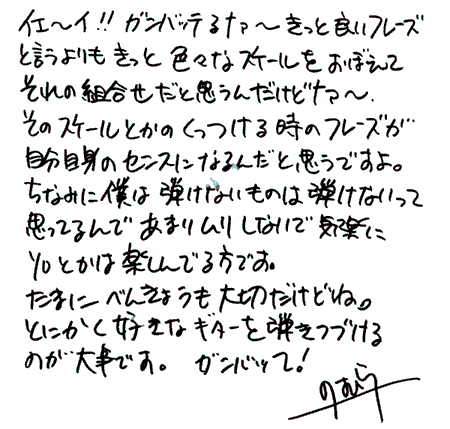 イエ〜イ!! ガンバッテるナァ〜きっと良いフレーズ
と言うよりもきっと色々なスケールをおぼえて
それの組合せだと思うんだけどナァ〜、
そのスケールとかのくっつける時のフレーズが
自分自身のセンスになるんだと思うですよ。
ちなみに僕は弾けないものは弾けないって
思ってるんであまりムリしないで気楽に
ソロとかは楽しんでる方です。
たまにべんきょうも大切だけどね。
とにかく好きなギターを弾きつづける
のが大事です。 ガンバッて!
のむら